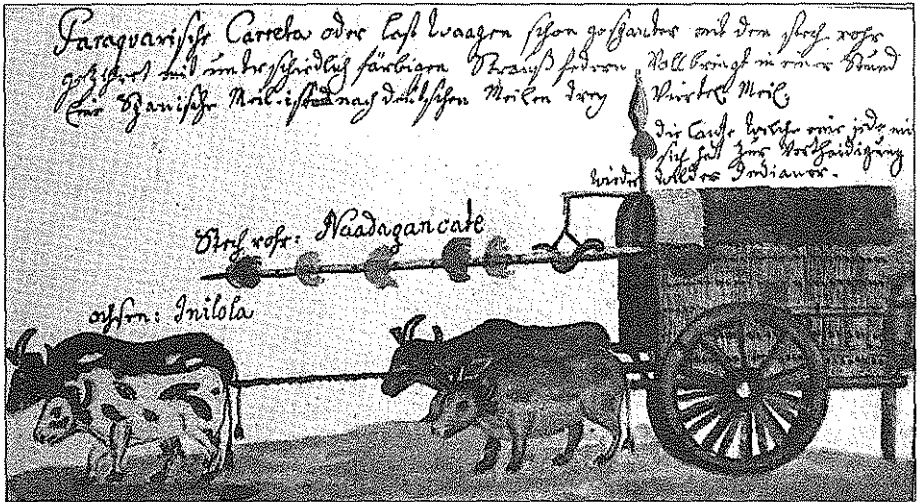 Paraquarische Carreta oder last waagen schon gespanter mit dem stech rohr
gezihret mit unterschiedlich färbigen Strauß federn Vollbringt in einer Stund
Eine Spanische Meil. ist nach deütschen Meilen drey Viertel Meil.
die welche ein jeder mit
sich hat zur Vertheidigung
wieder wilder Indianer.
Stech rohr: Naadagancate
ochsen: Inilola